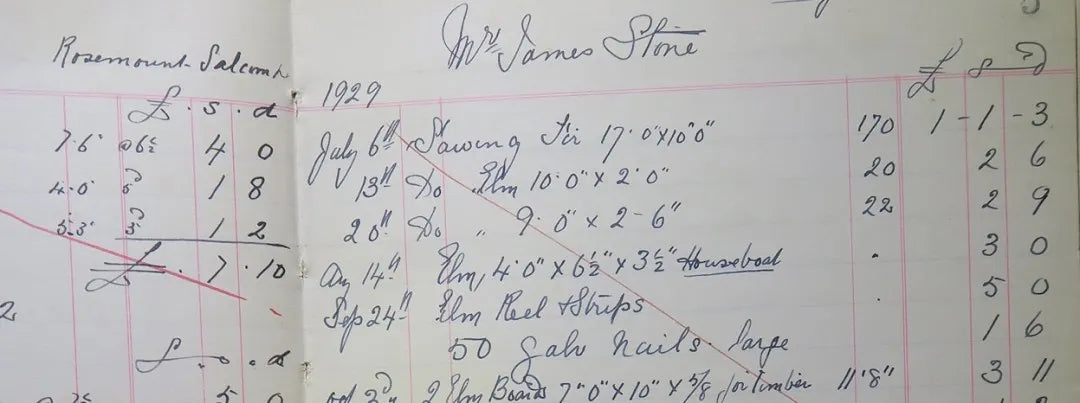 Rosemount Salcombe
£ . s . d
7.6" 4 0
4.0" 1 8
5.3" 1 2
£ . 7 . 10
£ . s . d
5 0
Mr James Stone
£ s d
1929
July 6th Sawing Fir 17.0"x10"0" 170 1-1-3
13th Do Elm 10.0" x 2.0" 20 2 6
20th Do " 9.0" x 2-6" 22 2 9
Aug 14th Elm, 4.0" x 6½" x 3½" Houseboat 3 0
Sep 24th Elm Keel & Strips 5 0
50 galv nails large 1 6
Oct 3rd 2 Elm Boards 7"0" x 10" x 5/8 for timber 11'8" 3 11